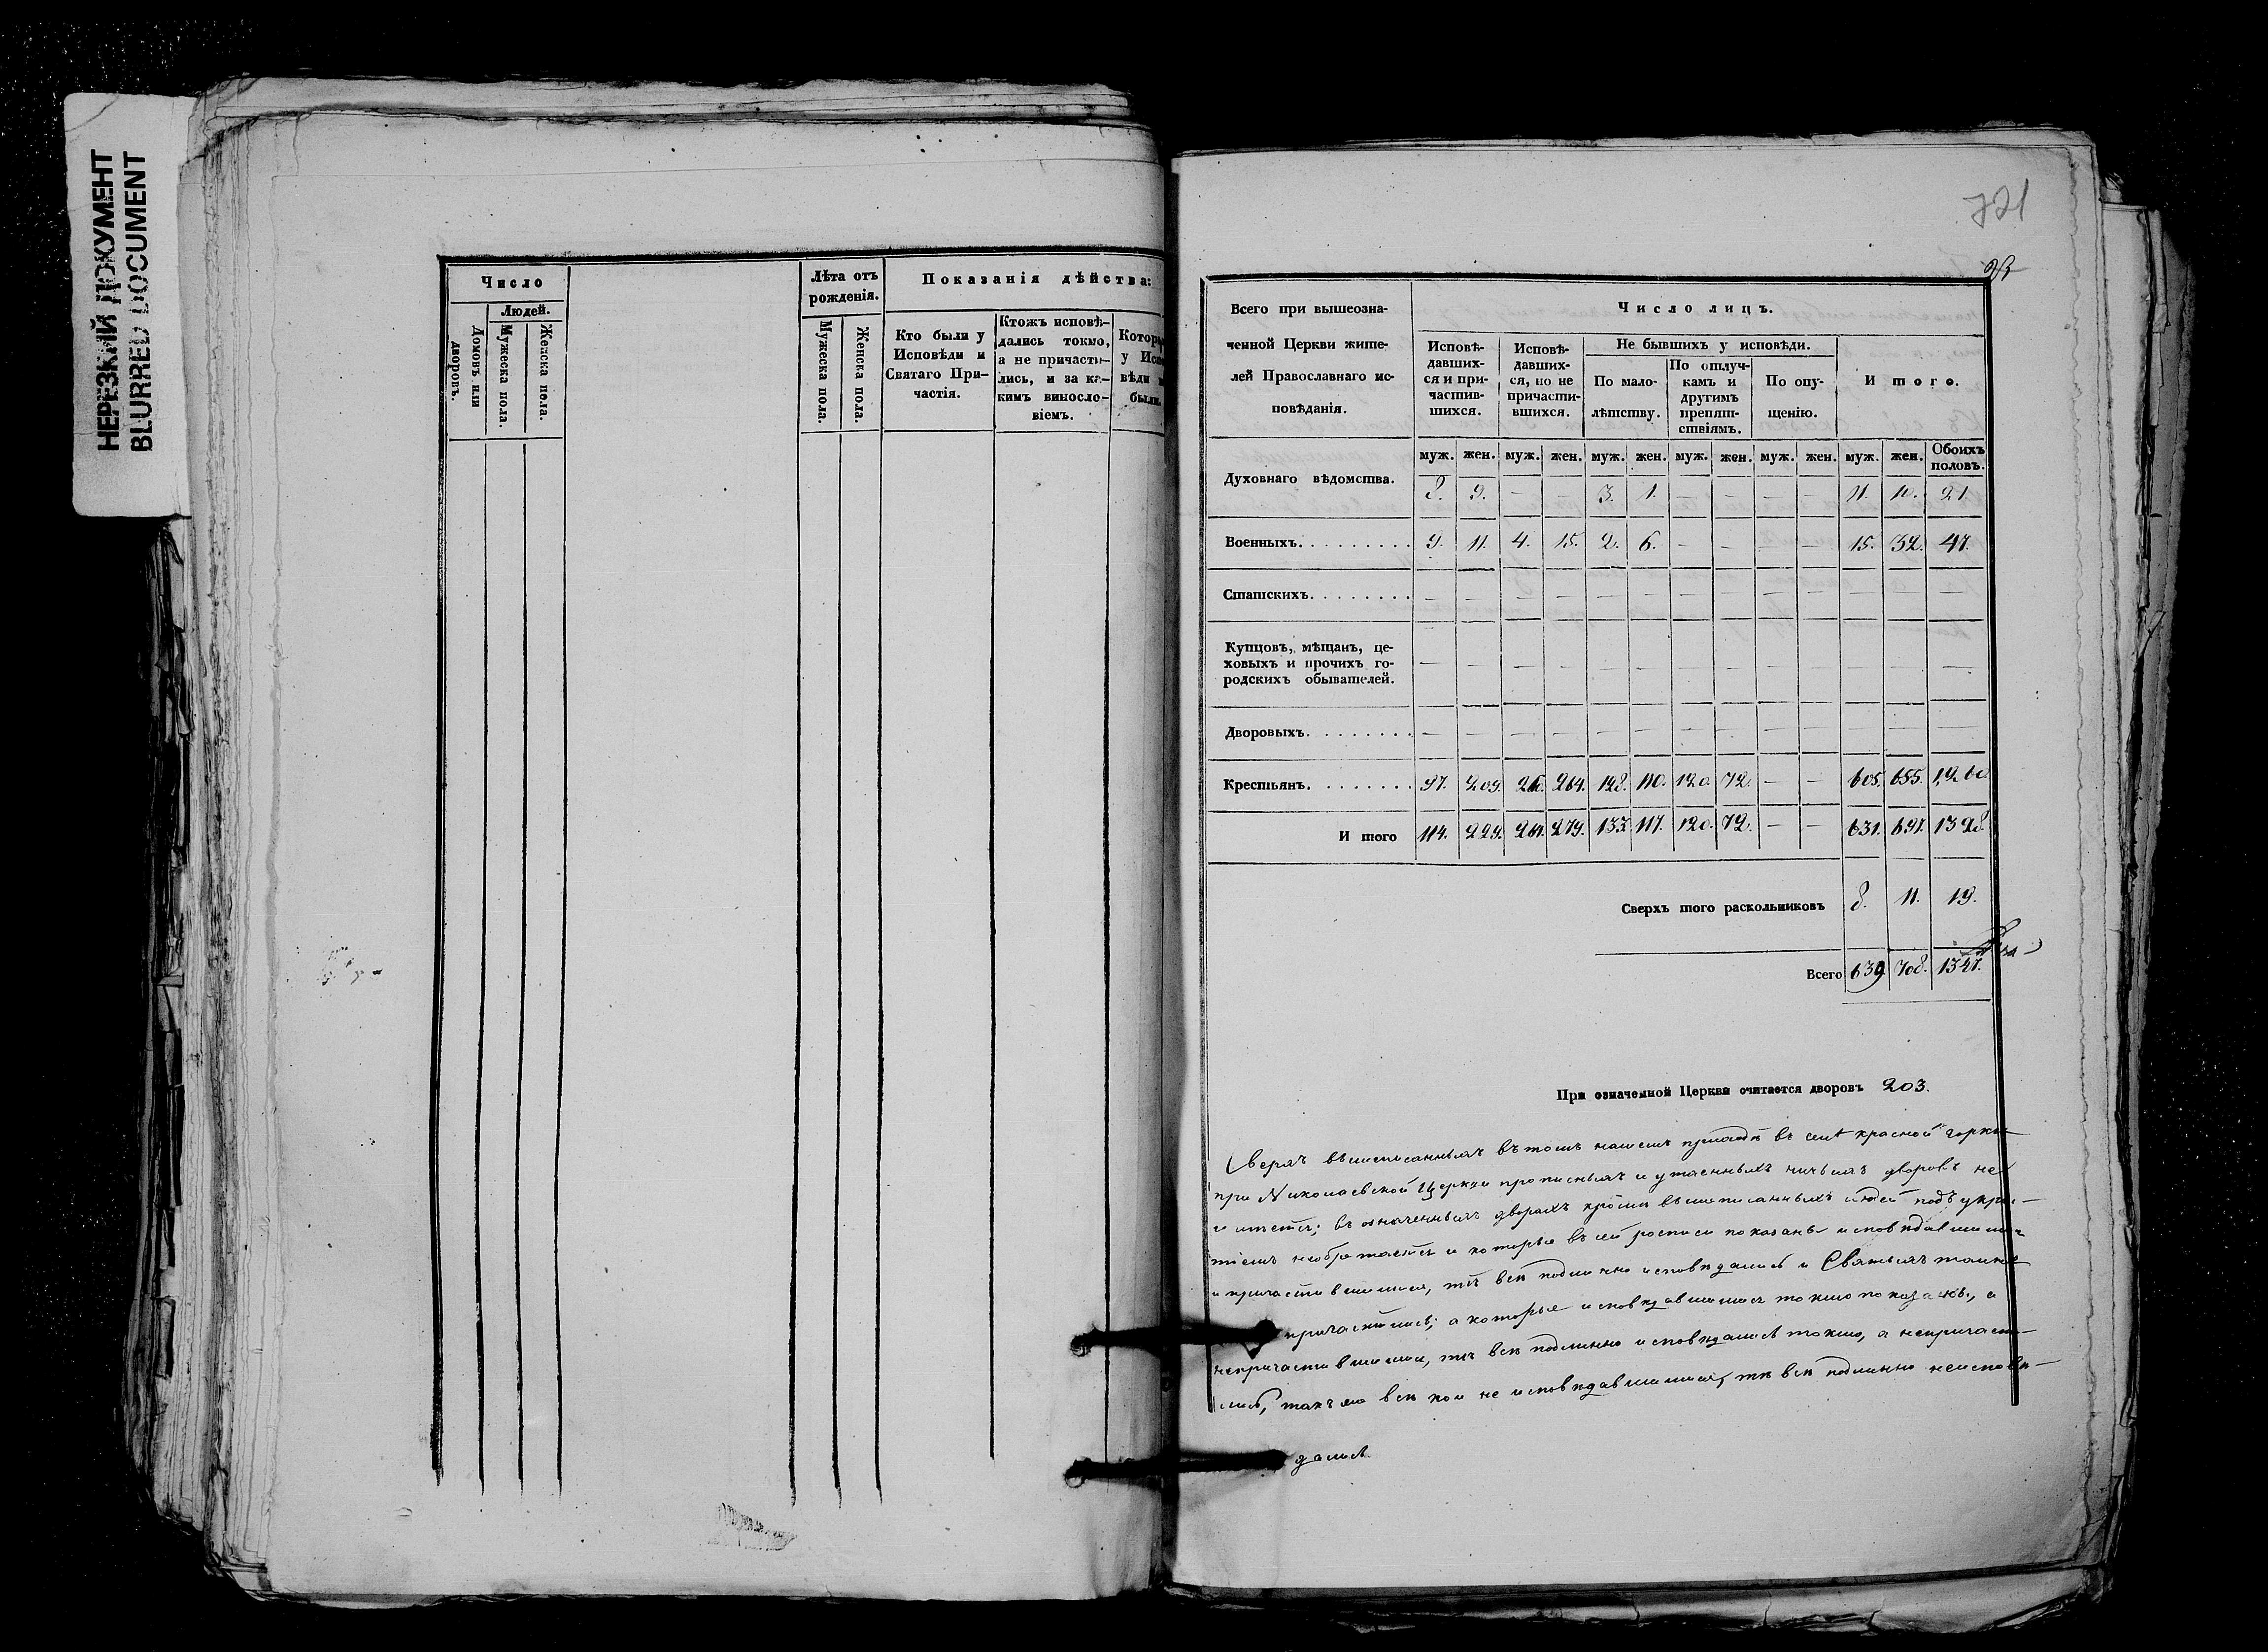 НЕРЕЗКИЙ ДОКУМЕНТ
BLURRED DOCUMENT
Число
Людей.
Домовъ или дворовъ.
Мужеска пола.
Женска пола.
Лѣта отъ рожденія.
Мужеска пола.
Женска пола.
Показанія дѣйства:
Кто были у
Исповѣди и
Святаго При-
частія.
Ктожъ исповѣ-
дались токмо,
а не причасти-
лись, и за ка-
кимъ винosло-
віемъ.
у
вѣди
были.
721
23
Всего при вышеозна-
ченной Церкви жите-
лей Православнаго ис-
повѣданія.
Число лицъ.
Исповѣ-
давших-
ся и при-
частив-
шихся.
Исповѣ-
давших-
ся, но не
причасти-
вшихся.
Не бывшихъ у исповѣди.
По мало-
лѣтству.
По отлуч-
камъ и
другимъ
препят-
ствіямъ.
По опу-
щенію.
И того.
муж. жен. муж. жен. муж. жен. муж. жен. муж. жен. муж. жен. Обоихъ половъ.
Духовнаго вѣдомства. 8. 9. — — 3. 1. — — — — 11. 10. 21.
Военныхъ. 9. 11. 4. 15. 2. 6. — — — — 15. 32. 47.
Статскихъ. — — — — — — — — — — — — —
Купцовъ, мѣщанъ, це-
ховыхъ и прочихъ го-
родскихъ обывателей. — — — — — — — — — — — — —
Дворовыхъ. — — — — — — — — — — — — —
Крестьянъ. 97. 209. 260. 264. 128. 110. 120. 72. — — 605. 655. 1260
И того 114. 229. 264. 279. 133. 117. 120. 72. — — 631. 697. 1328.
Сверхъ того раскольниковъ 8. 11. 19.
Всего 639 708. 1347.
При означенной Церкви считается дворовъ 203.
Сверхъ вышеписанныхъ въ томъ нашемъ приходѣ въ селѣ красной горкѣ
при Николаевской Церкви прописныхъ и утаенныхъ ничьихъ дворовъ не
имѣется; въ означенныхъ дворахъ кромѣ вышеписанныхъ людей подъ укры-
тіемъ необрѣтается и которые въ сей росписи показаны исповѣдавшимися
и причастившимися, тѣ всѣ подлинно исповѣдались и Святыхъ таинъ
причастились; а которые исповѣдавшимися токмо показаны, а
непричастившимися, тѣ всѣ подлинно исповѣдались токмо, а непричасти-
лись, также всѣ кои не исповѣдавшимися, тѣ всѣ подлинно неисповѣ-
дались.